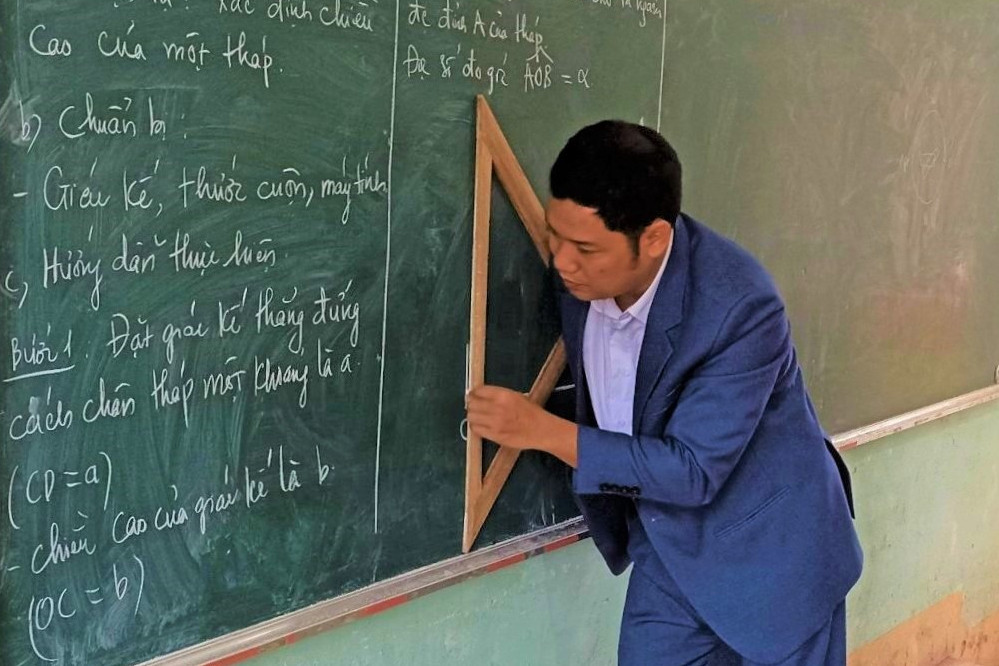 xác định chiều
Cao của một tháp.
b) Chuẩn bị :
- Giác kế, thước cuộn, máy tính
c, Hướng dẫn thực hiện.
Bước 1. Đặt giác kế thẳng đứng
cách chân tháp một khoảng là a.
(CD = a)
- chiều cao của giác kế là b.
(OC = b)
để đỉnh A của tháp
Đọ số đo góc AOB = α